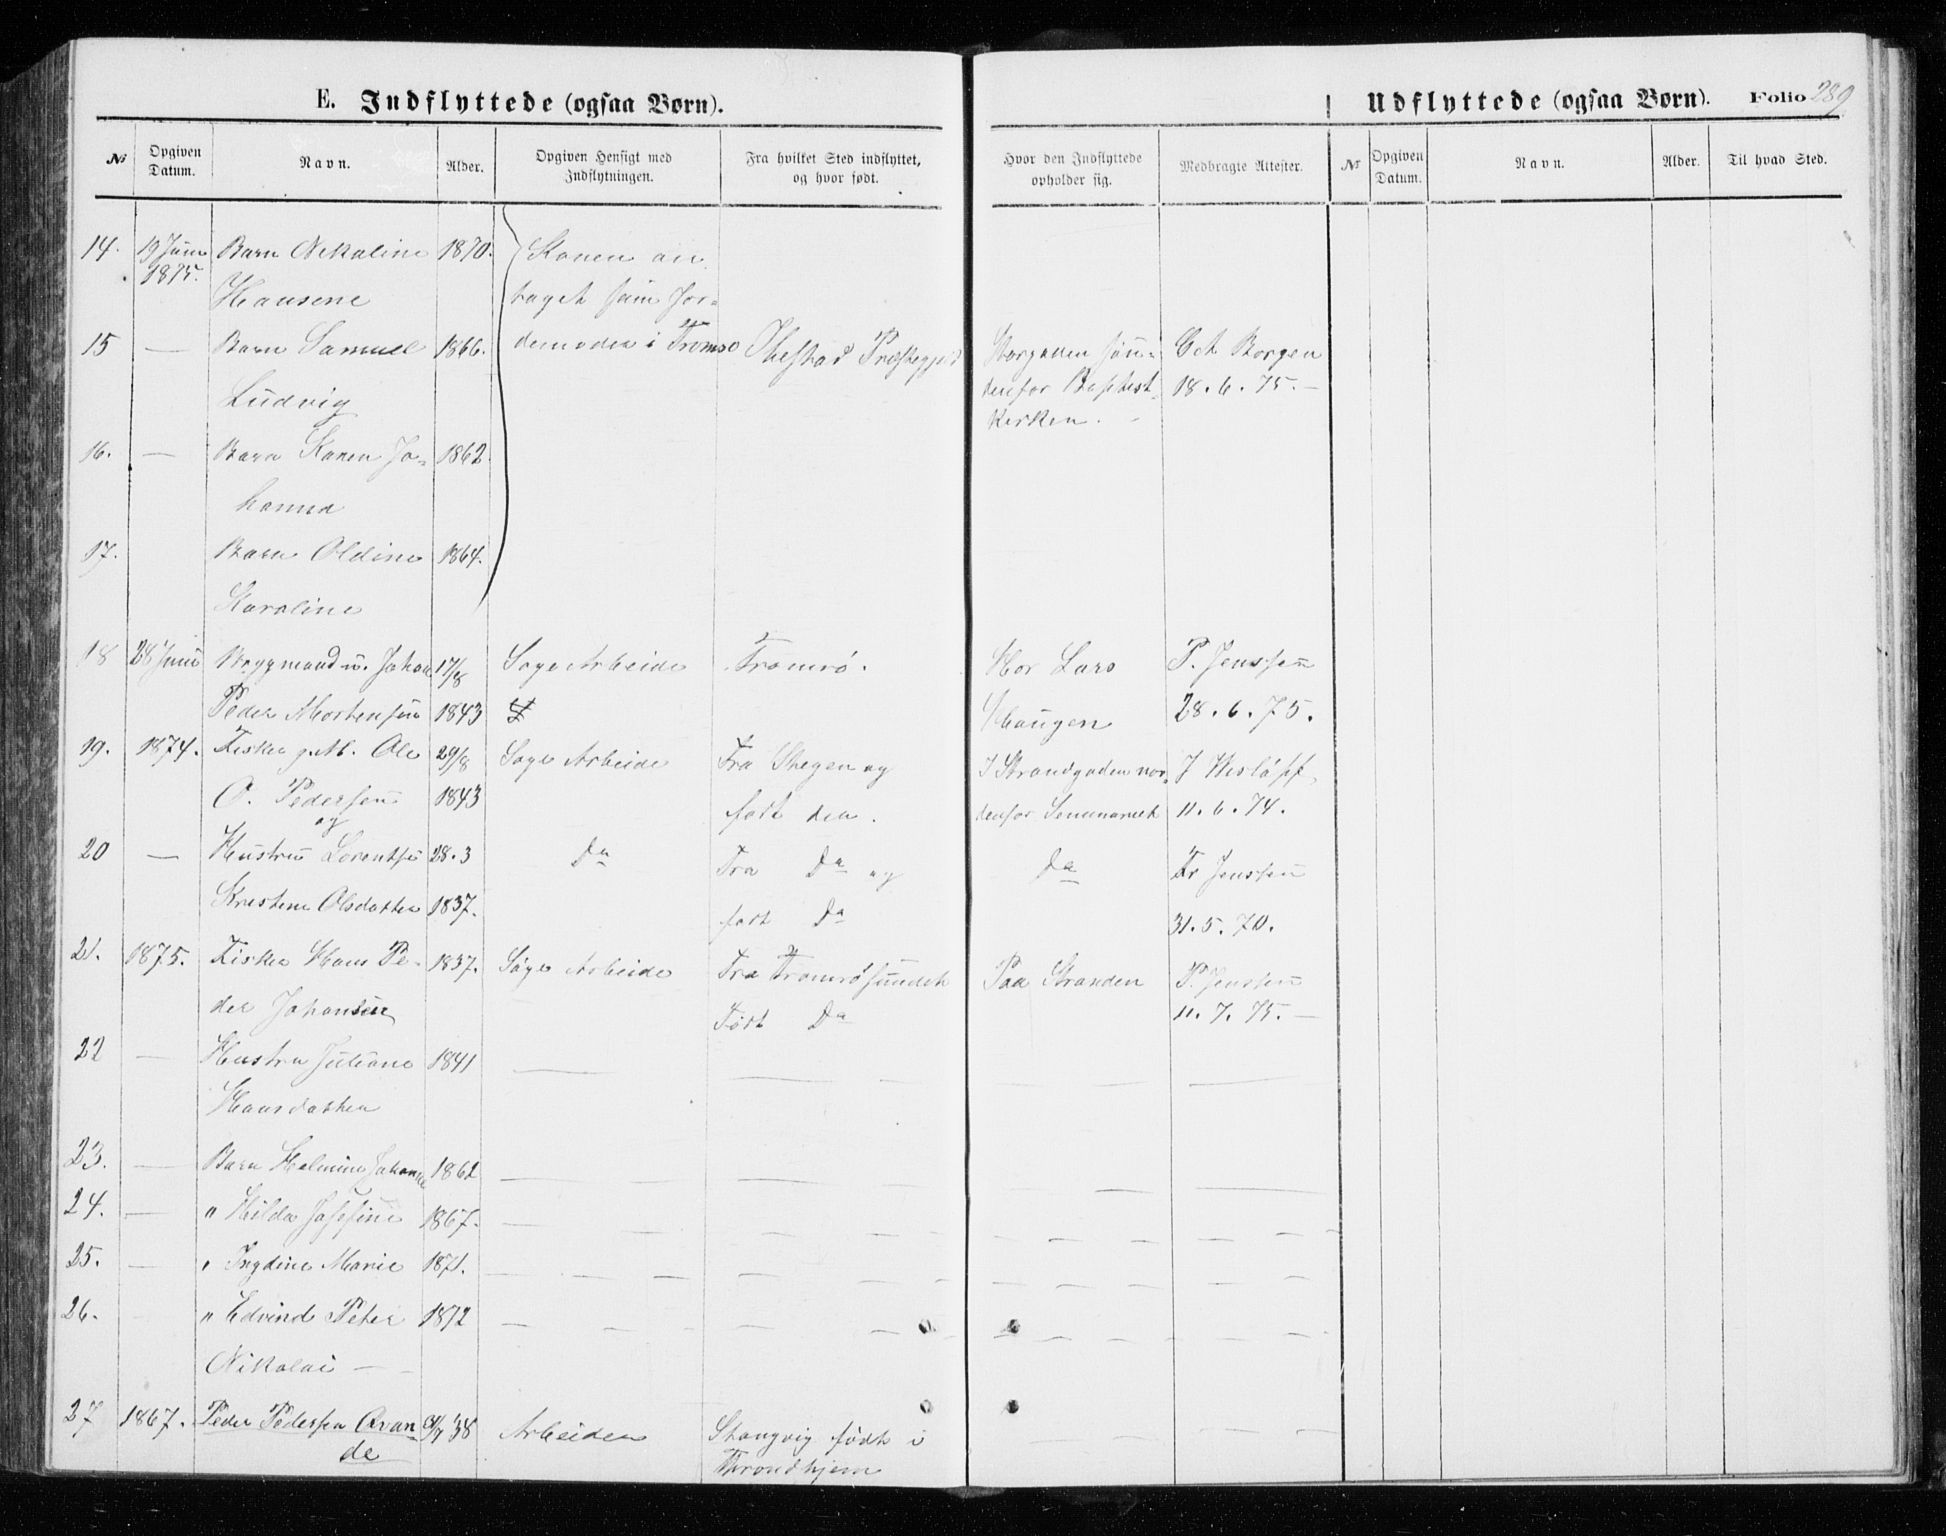 E. Indflyttede (ogsaa Børn).
Udflyttede (ogsaa Børn). Folio 289
№ Opgiven Datum. Navn. Alder. Opgiven Hensigt med Indflytningen. Fra hvilket Sted indflyttet, og hvor født. Hvor den Indflyttede opholder sig. Medbragte Attester. № Opgiven Datum. Navn. Alder. Til hvad Sted.
14. 19 Juni Barn Nikoline 1870. Konen an
1875. Hansene taget som Jor-
15 — Barn Samuel 1866. demoder i Tromsø Ibestad Præstegjeld Storgaden søn- Oct Borgen
Ludvig denfor Baptist- 18. 6. 75. —
kirken.
16. — Barn Karen Jo- 1862.
hanna
17. Barn Oldine 1864.
Karoline
18 28 Juni Byggmand u. Johan 17/8 Søge Arbeide Tromsø. Hos Lars P. Jenssen
Peder Mortensen 1843 Haugen 28. 6. 75.
19. 1874. Fisker g. M. Ole 29/8 Søge Arbeide Fra Stegen og I Strandgaden nor- J Wisløff
O. Pedersen 1843 født der. denfor Seminariet 11. 6. 74.
og
20 — Hustru Lorentse 28. 3 Do Fra Do og Do Fr Jenssen
Kristine Olsdatter 1837. født Do 31. 5. 70.
21. 1875. Fisker Hans Pe- 1837. Søge Arbeide Fra Tromsøsundet Paa Stranden P. Jenssen
der Johansen Født Do 11. 7. 75. —
22 — Hustru Juliane 1841 — — — — —
Hansdatter
23. — Barn Halmine Johanne 1862 — — — — —
24. — " Hilda Josefine 1867. — — — — —
25. — " Ingdine Marie 1871. — — — — —
26. " Edvind Peter 1872 — — — — —
Nikolai —
27 1867. Peder Pedersen Qvan- 9/7 38 Arbeider Stangvig født i — — —
de Trondhjem